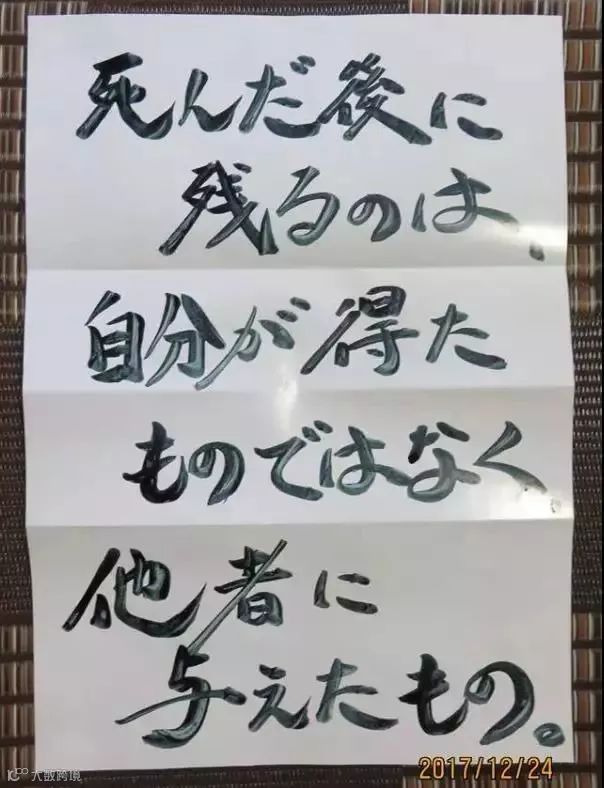 死んだ後に
残るのは、
自分が得た
ものではなく
他者に
与えたもの。
2017/12/24
大数跨境